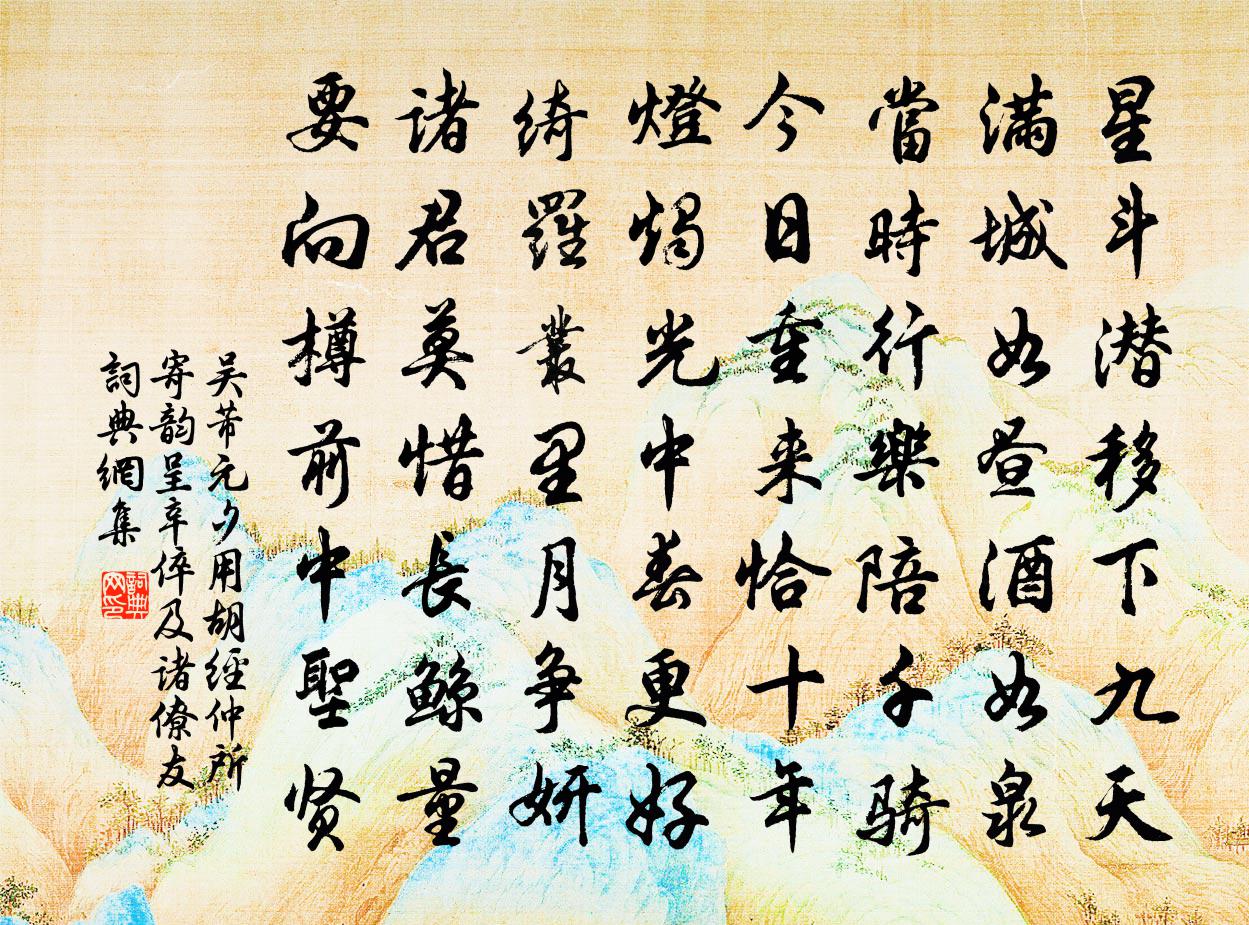 星斗潜移下九天
满城如昼酒如泉
當時行樂陪千骑
今日重来恰十年
燈烛光中春更好
绮羅叢里月争妍
诸君莫惜長鲸量
要向樽前中聖贤
吴芾元夕用胡經仲所
寄韵呈辛倅及诸僚友
詞典網集
詞典
网印